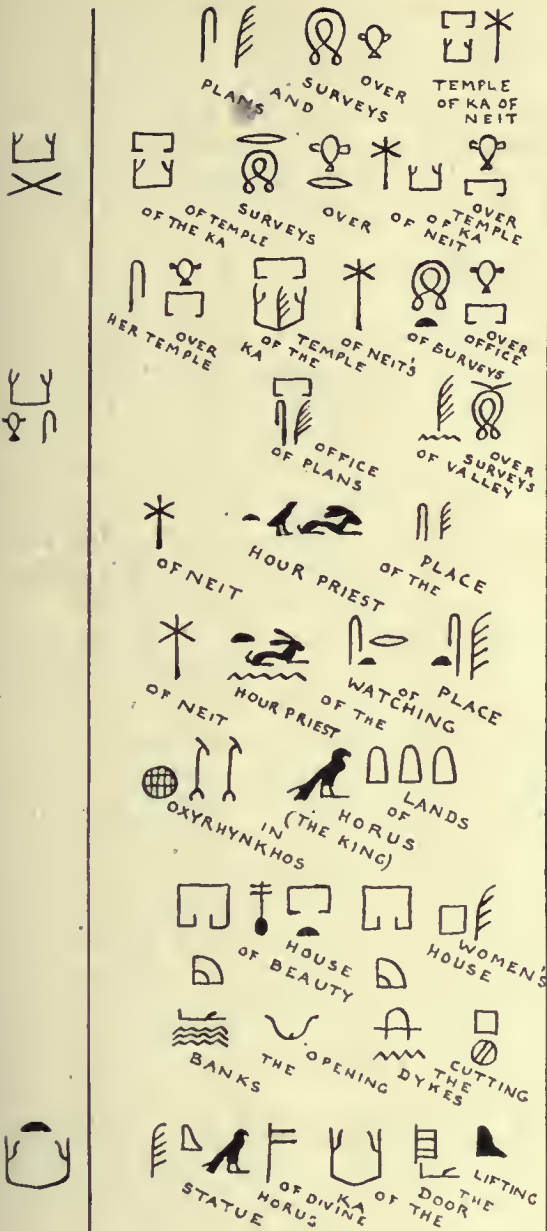 PLANS AND SURVEYS OVER
TEMPLE
OF KA OF
NEIT
OF THE KA OF TEMPLE SURVEYS OVER OF NEIT OF KA TEMPLE OVER
HER TEMPLE OVER KA OF THE TEMPLE OF NEIT'S OF SURVEYS OFFICE OVER
OF PLANS OFFICE OF VALLEY SURVEYS OVER
OF NEIT HOUR PRIEST OF THE PLACE
OF NEIT HOUR PRIEST OF THE WATCHING OF PLACE
OXYRHYNKHOS IN (THE KING) HORUS OF LANDS
OF BEAUTY HOUSE HOUSE WOMEN'S
BANKS THE OPENING DYKES THE CUTTING
STATUE HORUS OF DIVINE KA OF THE DOOR THE LIFTING